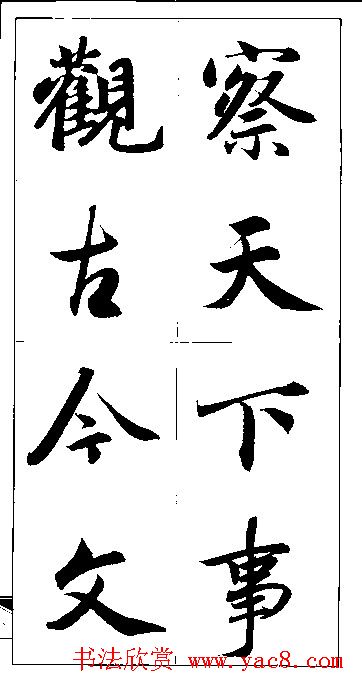 察天下事
觀古今文
书法欣赏 www.yac8.com